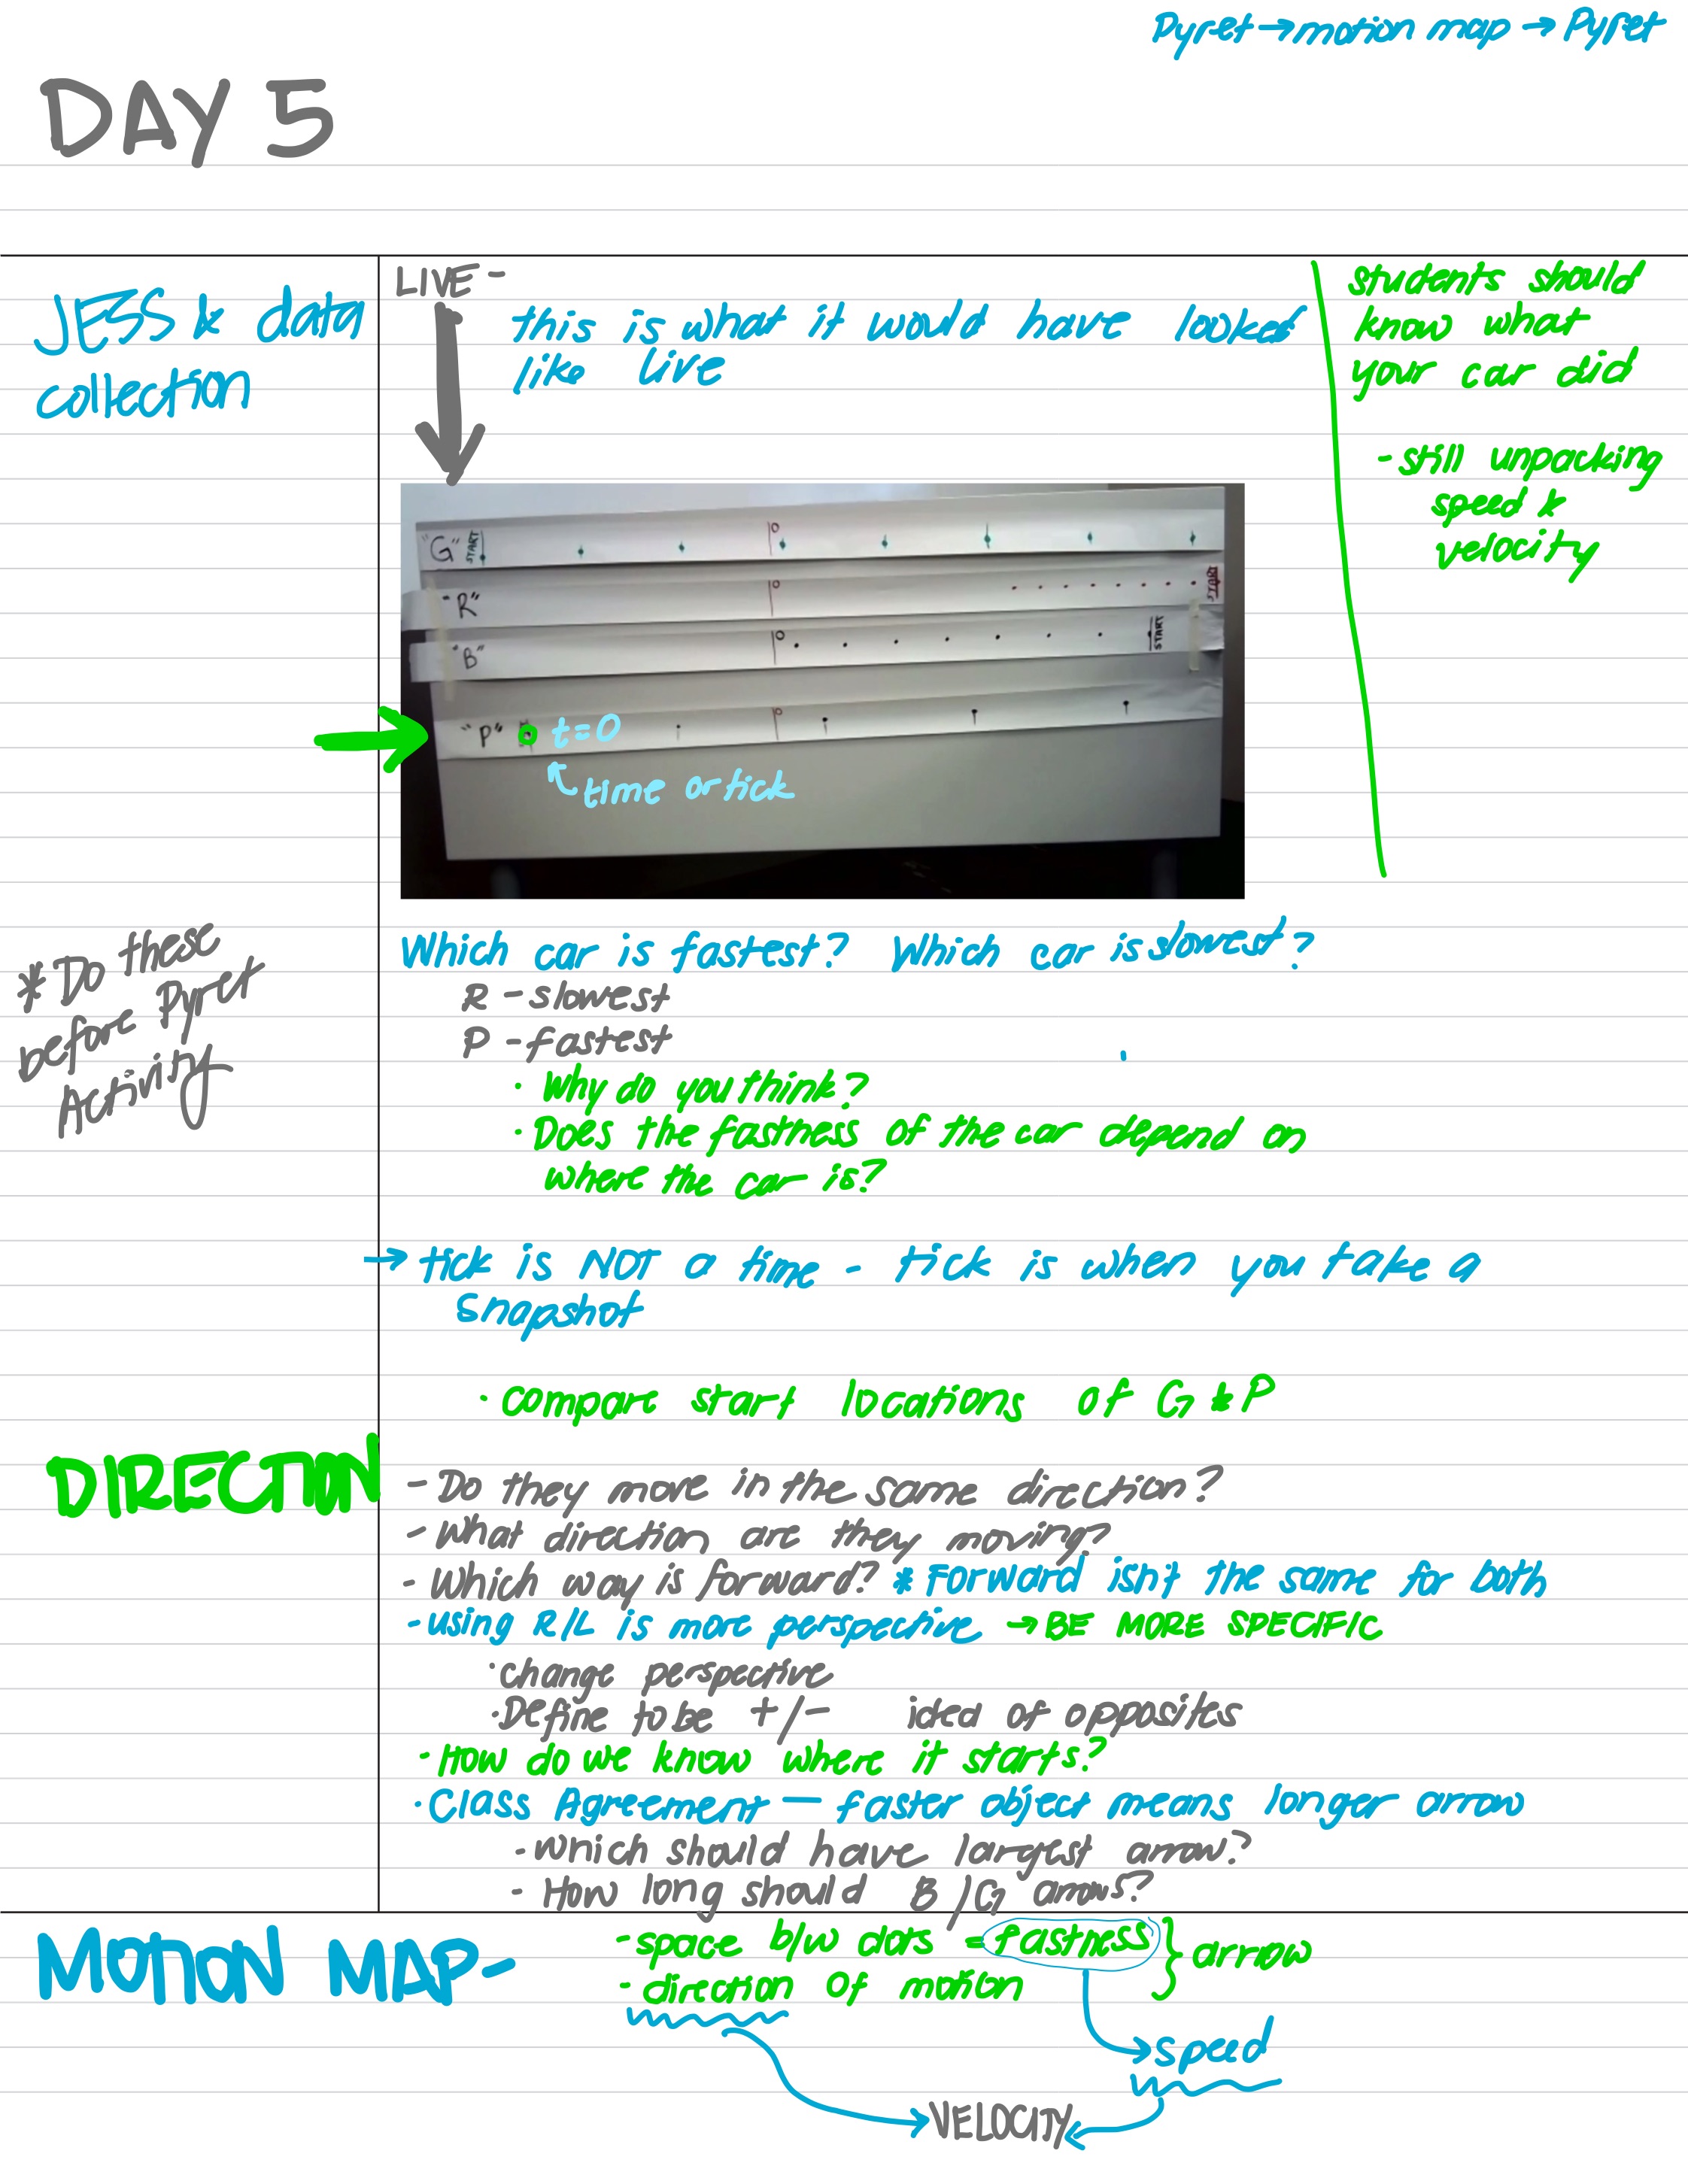 Pyret → motion map → Pyret
DAY 5
JESS & data
collection
LIVE -
this is what it would have looked
like live
students should
know what
your car did
- still unpacking
speed &
velocity
"G" START 0
"R" 0 START
"B" 0 START
"P" 0
t=0
time or tick
* Do these
before Pyret
Activity
Which car is fastest? Which car is slowest?
R - slowest
P - fastest
· Why do you think?
· Does the fastness of the car depend on
where the car is?
→ tick is NOT a time - tick is when you take a
snapshot
· compare start locations of G & P
DIRECTION
- Do they move in the same direction?
- What direction are they moving?
- Which way is forward? * Forward isn't the same for both
- using R/L is more perspective → BE MORE SPECIFIC
· change perspective
· Define to be +/- idea of opposites
- How do we know where it starts?
· Class Agreement — faster object means longer arrow
- which should have largest arrow?
- How long should B/G arrows?
MOTION MAP-
- space b/w dots = fastness } arrow
- direction of motion
→ speed
→ VELOCITY ←